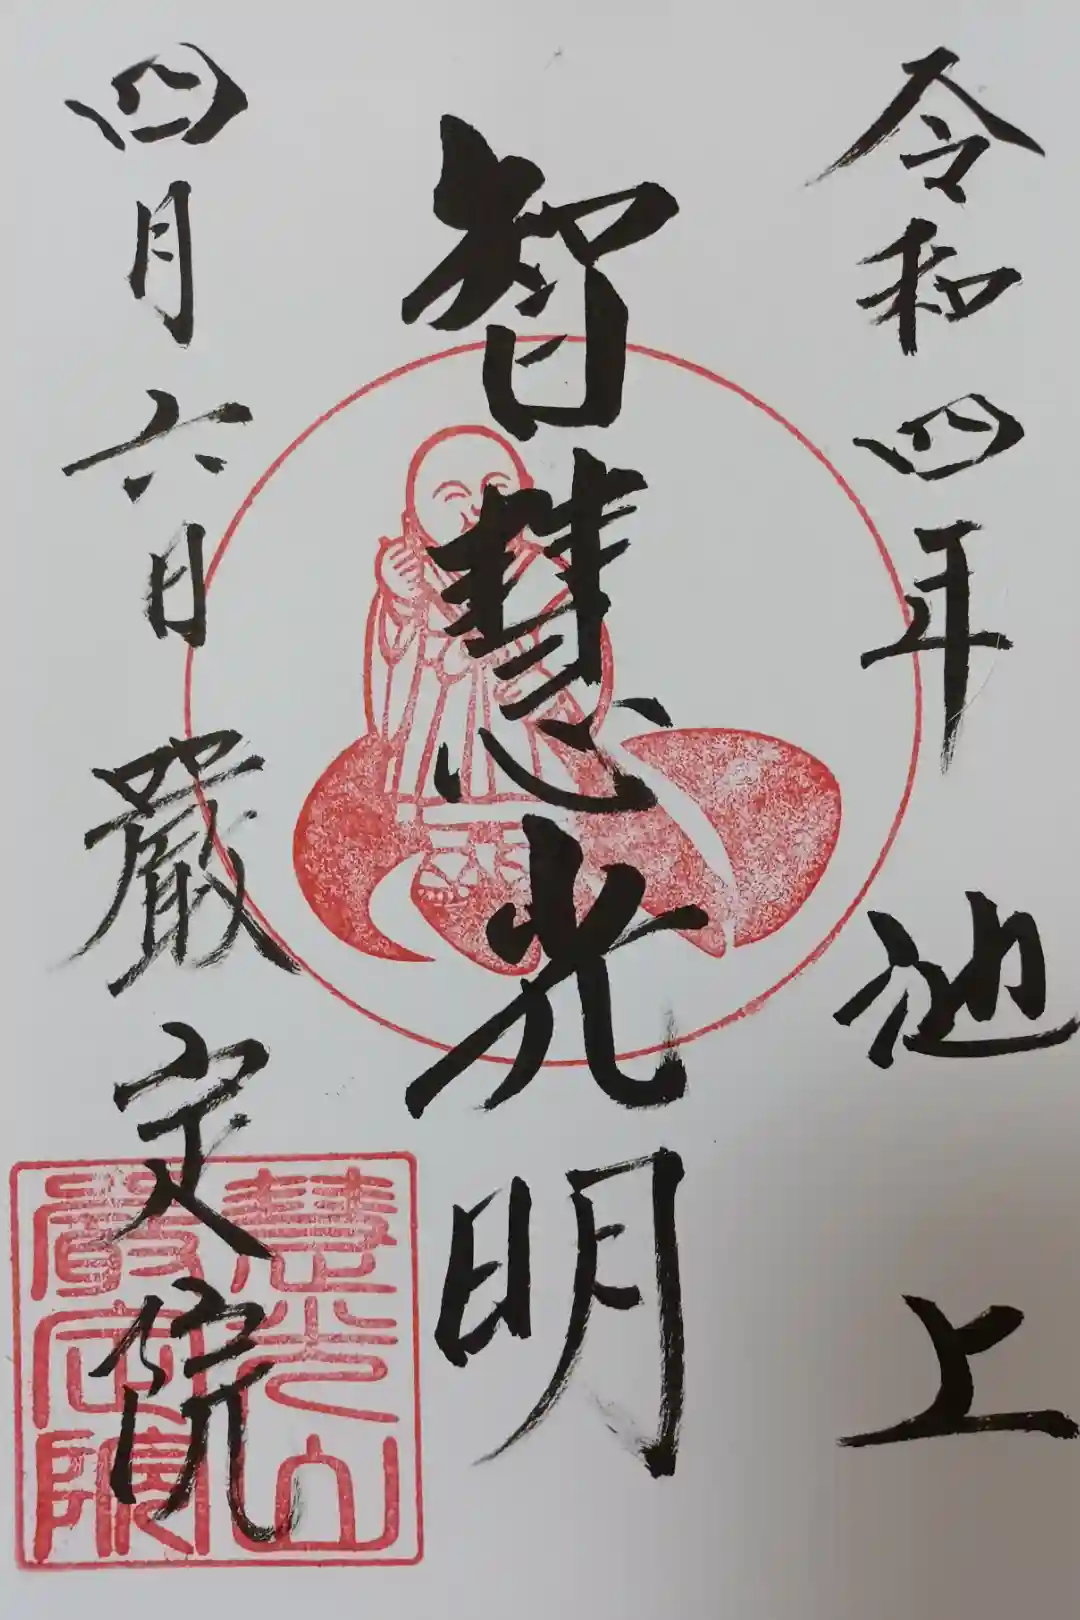 令和四年 池上
智慧光明
四月六日 嚴定院
慧光山
嚴定院